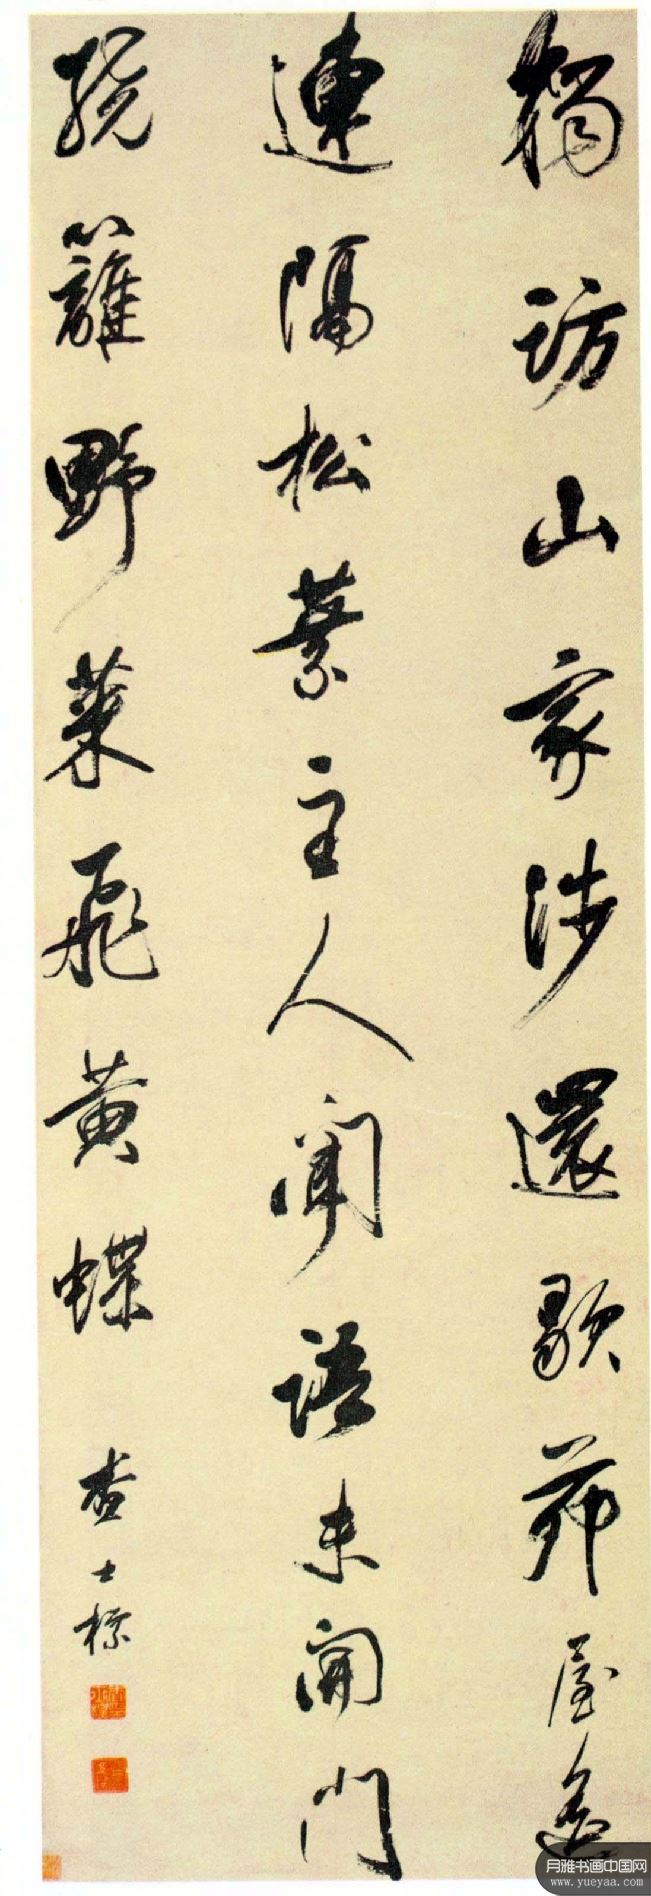 獨訪山家涉還歇茆屋
連隔松葉主人聞語未開門
繞籬野菜飛黃蝶
查士標
月雅书画中国网
www.yueyaa.com